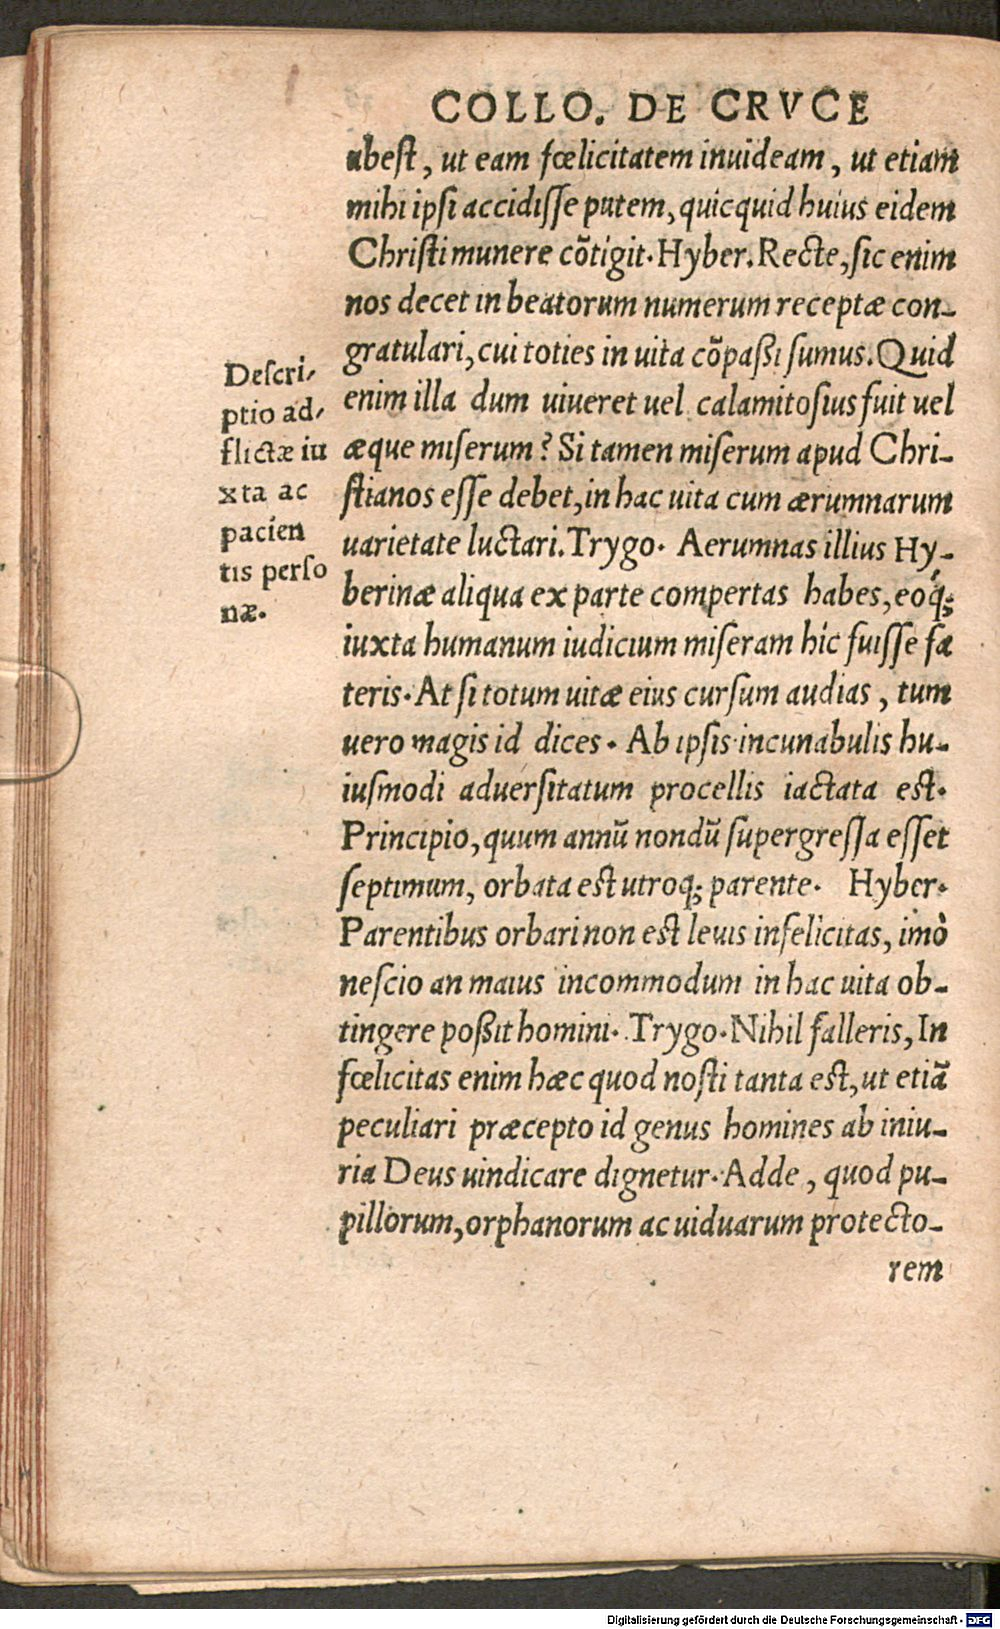 COLLO. DE CRVCE
abest, ut eam fœlicitatem inuideam, ut etiam
mihi ipsi accidisse putem, quicquid huius eidem
Christi munere cōtigit. Hyber. Recte, sic enim
nos decet in beatorum numerum receptæ con-
gratulari, cui toties in uita cōpaßi sumus. Quid
enim illa dum uiueret uel calamitosius fuit uel
æque miserum? Si tamen miserum apud Chri-
stianos esse debet, in hac uita cum ærumnarum
uarietate luctari. Trygo. Aerumnas illius Hy-
berinæ aliqua ex parte compertas habes, eoq́;
iuxta humanum iudicium miseram hîc fuisse fa
teris. At si totum uitæ eius cursum audias, tum
uero magis id dices. Ab ipsis incunabulis hu-
iusmodi aduersitatum procellis iactata est.
Principio, quum annū nondū supergressa esset
septimum, orbata est utroq; parente. Hyber.
Parentibus orbari non est leuis infelicitas, imò
nescio an maius incommodum in hac uita ob-
tingere poßit homini. Trygo. Nihil falleris, In
fœlicitas enim hæc quod nosti tanta est, ut etiā
peculiari præcepto id genus homines ab iniu-
ria Deus uindicare dignetur. Adde, quod pu-
pillorum, orphanorum ac uiduarum protecto-
rem
Descri-
ptio ad-
flictæ iu
xta ac
pacien
tis perso
næ.
Digitalisierung gefördert durch die Deutsche Forschungsgemeinschaft - DFG